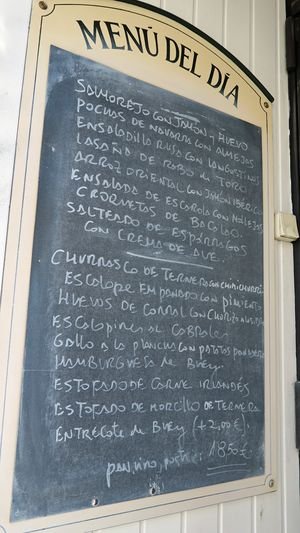 MENÚ DEL DÍA
SALMOREJO CON JAMÓN Y HUEVO
POCHAS DE NAVARRA CON ALMEJAS
ENSALADILLA RUSA CON LANGOSTINOS
LASAÑA DE RABO DE TORO
ARROZ ORIENTAL CON JAMÓN IBÉRICO
ENSALADA DE ESCAROLA CON MOLLEJAS
CROQUETAS DE BACALAO
SALTEADO DE ESPÁRRAGOS
CON CREMA DE AVE
CHURRASCO DE TERNERA CON CHIMICHURRI
ESCALOPE EMPANADO CON PIMIENTO
HUEVOS DE CORRAL CON CHORIZO
ESCALOPINES AL CABRALES
GALLO A LA PLANCHA CON PATATAS PANADERA
HAMBURGUESA DE BUEY
ESTOFADO DE CARNE IRLANDÉS
ESTOFADO DE MORCILLO DE TERNERA
ENTRECOTE DE BUEY (+2,00€)
pan, vino, postre: 18,50€